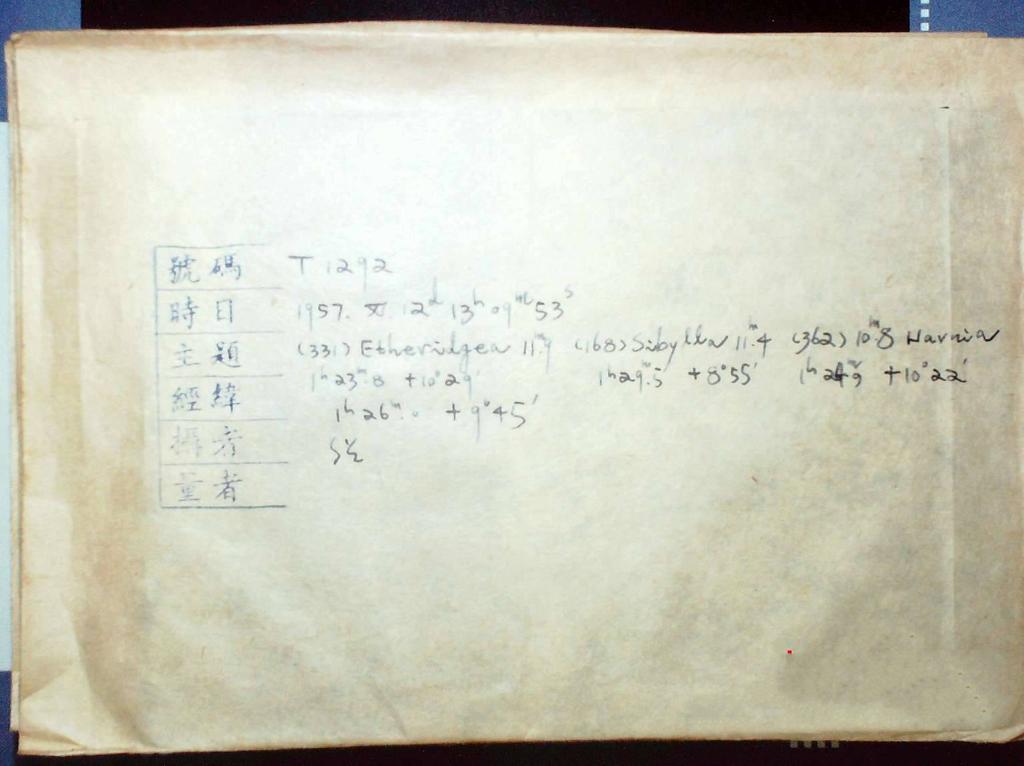 號碼 T 1292
時日 1957. XI. 12ᵈ 13ʰ 09ᵐ 53ˢ
主題 (331) Etheridgea 11ᵐ.9 (168) Sibylla 11ᵐ.4 (362) 10ᵐ.8 Havnia
1ʰ23ᵐ.8 +10°29′ 1ʰ29ᵐ.5 +8°55′ +10°22′
經緯 1ʰ26ᵐ.0 +9°45′
攝者
量者